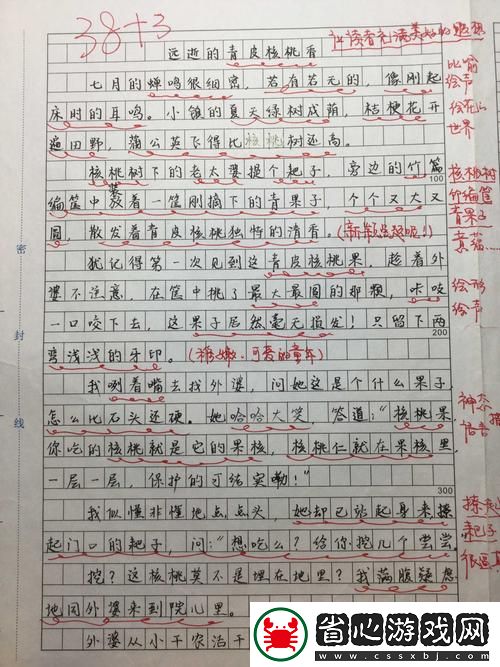 38+3
让读者充满美好的遐想
远逝的青皮核桃香
七月的蝉鸣很细密,若有若无的,像刚起
比喻
绘声
床时的耳鸣。小镇的夏天绿树成荫,桔梗花开
绘花儿
世界
遍田野,蒲公英飞得比核桃树还高。
核桃树下的老太婆提个耙子,旁边的竹篇
100
核桃树
编筐中装着一筐刚摘下的青果子,个个又大又
竹编筐
青果子
圆,散发着青皮核桃独特的清香。
真蕴……
犹记得第一次见到这青皮核桃果,趁着外
婆不注意,在筐中挑了最大最圆的那颗,咔吱
绘形
绘声
一口咬下去,这果子居然毫无损发!只留下两
200
弯浅浅的牙印。(稚嫩、可爱的童年)
我咧着嘴去找外婆,问她这是个什么果子,
怎么比石头还硬。她哈哈大笑 答道:“核桃果,
神态
语言
你吃的核桃就是它的果核,核桃仁就在果核里,
一层一层,保护的可结实嘞!”
300
我似懂非懂地点点头,她却已站起身来操
起门口的耙子,问:“想吃么?给你挖几个尝尝。
耙子
挖?这核桃莫不是埋在地里?我满腹疑惑
地同外婆来到院儿里。
外婆从小干农活干
密
封
线
省心游戏网
www.cssxbj.com